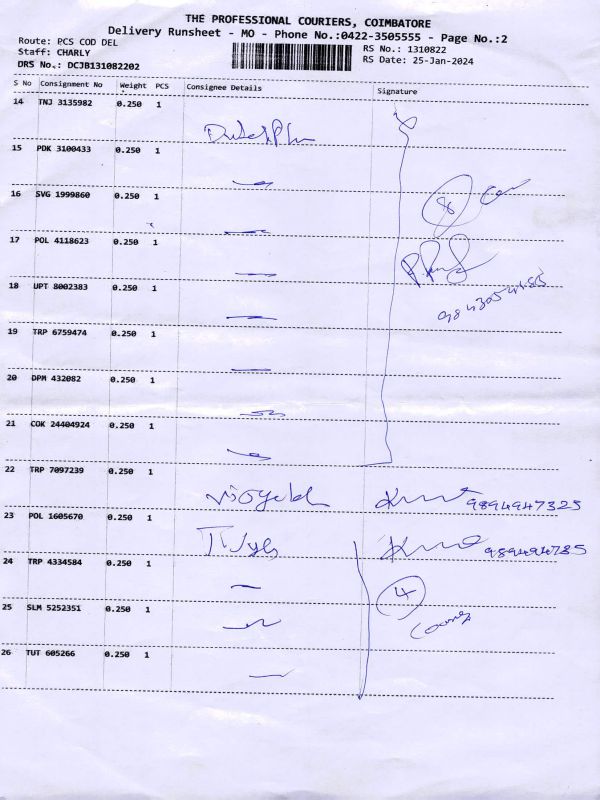 THE PROFESSIONAL COURIERS, COIMBATORE
Delivery Runsheet - MO - Phone No.:0422-3505555 - Page No.:2
Route: PCS COD DEL
RS No.: 1310822
Staff: CHARLY
RS Date: 25-Jan-2024
DRS No.: DCJB131082202
S No Consignment No Weight PCS Consignee Details Signature
14 TNJ 3135982 0.250 1
15 PDK 3100433 0.250 1
16 SVG 1999860 0.250 1
8
17 POL 4118623 0.250 1
18 UPT 8002383 0.250 1
19 TRP 6759474 0.250 1
20 DPM 432082 0.250 1
21 COK 24404924 0.250 1
22 TRP 7097239 0.250 1
9894947325
23 POL 1605670 0.250 1
24 TRP 4334584 0.250 1
4
25 SLM 5252351 0.250 1
26 TUT 605266 0.250 1